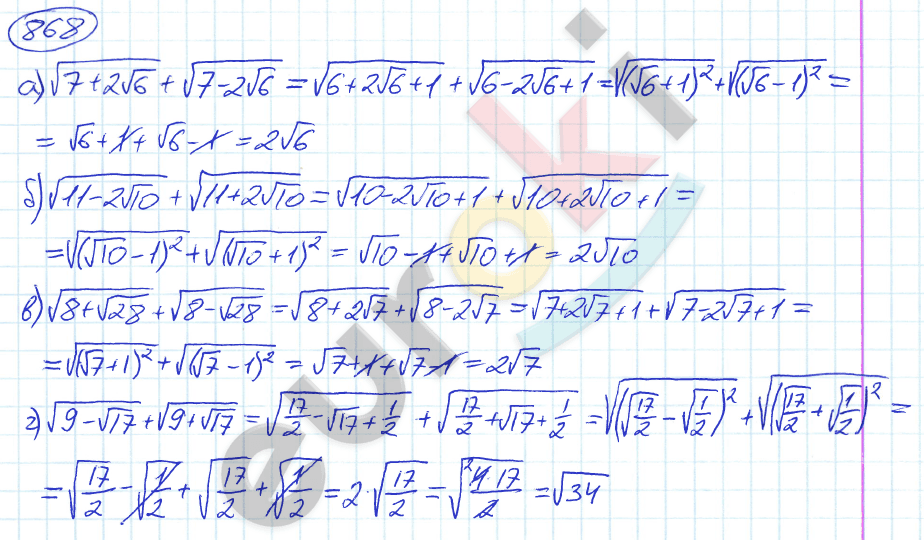 868
а) √(7+2√6) + √(7-2√6) = √(6+2√6+1) + √(6-2√6+1) = √((√6+1)²) + √((√6-1)²) =
= √6+1+√6-1 = 2√6
б) √(11-2√10) + √(11+2√10) = √(10-2√10+1) + √(10+2√10+1) =
= √((√10-1)²) + √((√10+1)²) = √10-1+√10+1 = 2√10
в) √(8+√28) + √(8-√28) = √(8+2√7) + √(8-2√7) = √(7+2√7+1) + √(7-2√7+1) =
= √((√7+1)²) + √((√7-1)²) = √7+1+√7-1 = 2√7
г) √(9-√17) + √(9+√17) = √(17/2-√17+1/2) + √(17/2+√17+1/2) = √((√(17/2)-√(1/2))²) + √((√(17/2)+√(1/2))²) =
= √(17/2) - √(1/2) + √(17/2) + √(1/2) = 2·√(17/2) = √(4·17/2) = √34
euroki